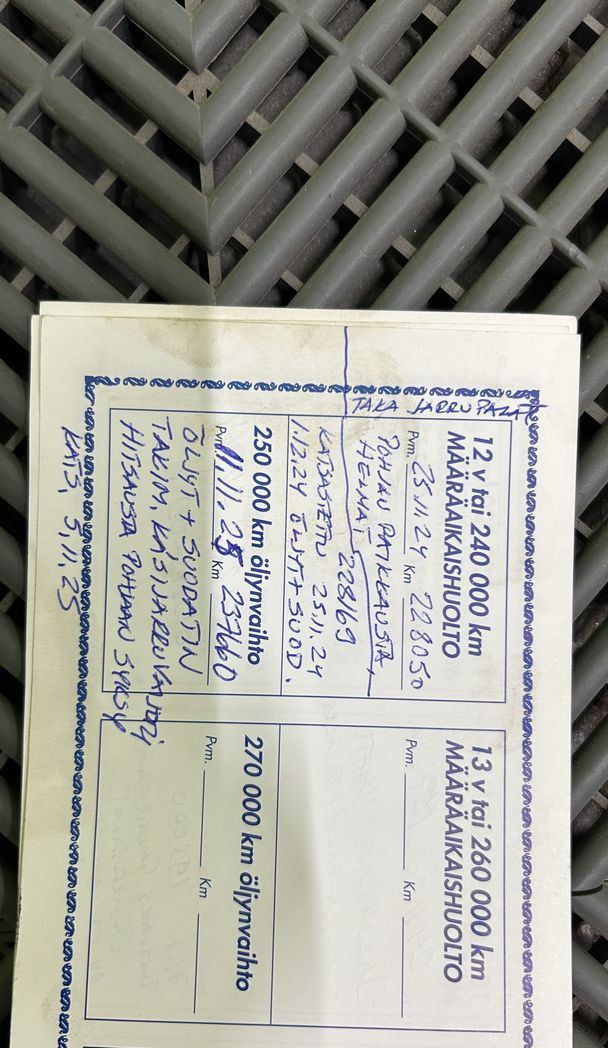 TAKA JARRUPALAT
12 v tai 240 000 km
MÄÄRÄAIKAISHUOLTO
Pvm. 25.11.24 Km 228050
POHJAN PAIKKAUSTA,
HEINÄ
228169
KATSASTETTU 25.11.24
1.12.24 ÖLJYT + SUOD.
250 000 km öljynvaihto
Pvm. 11.11.25 Km 237660
ÖLJYT + SUODATIN
TAKIM. KÄSIJARRUVAIJERI
HITSAUSTA POHJAAN SYKSY
KATS. 5.11.25
13 v tai 260 000 km
MÄÄRÄAIKAISHUOLTO
Pvm. Km
270 000 km öljynvaihto
Pvm. Km